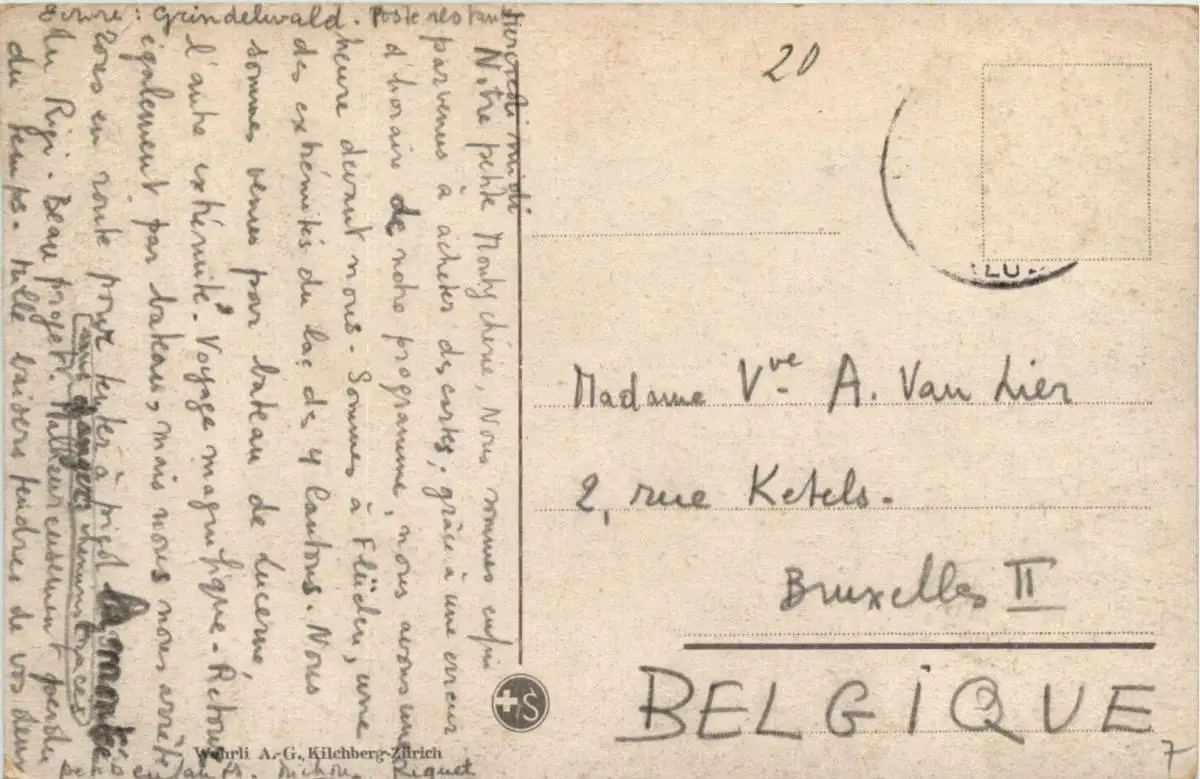 Ecrire : Grindelwald. Poste restante
Mercredi midi
Notre petite Monty chérie, Nous sommes enfin
parvenus à acheter des cartes, grâce à une erreur
d'horaire de notre programme, nous avons une
heure devant nous. Sommes à Flüelen, une
des extrémités du lac des 4 Cantons. Nous
sommes venus par bateau de Lucerne,
l'autre extrémité. Voyage magnifique. Retour
également par bateau, mais nous nous arrêterons
en route pour tenter à pied la montée
sans danger chemins tracés
du Rigi. Beau projet. Malheureusement perdu
du temps. Mille baisers tendres de vos deux
petits enfants. Riquet
Wehrli A.-G., Kilchberg-Zürich
S
20
LU
Madame Vve A. Van Lier
2, rue Ketels.
Bruxelles II
BELGIQUE
7